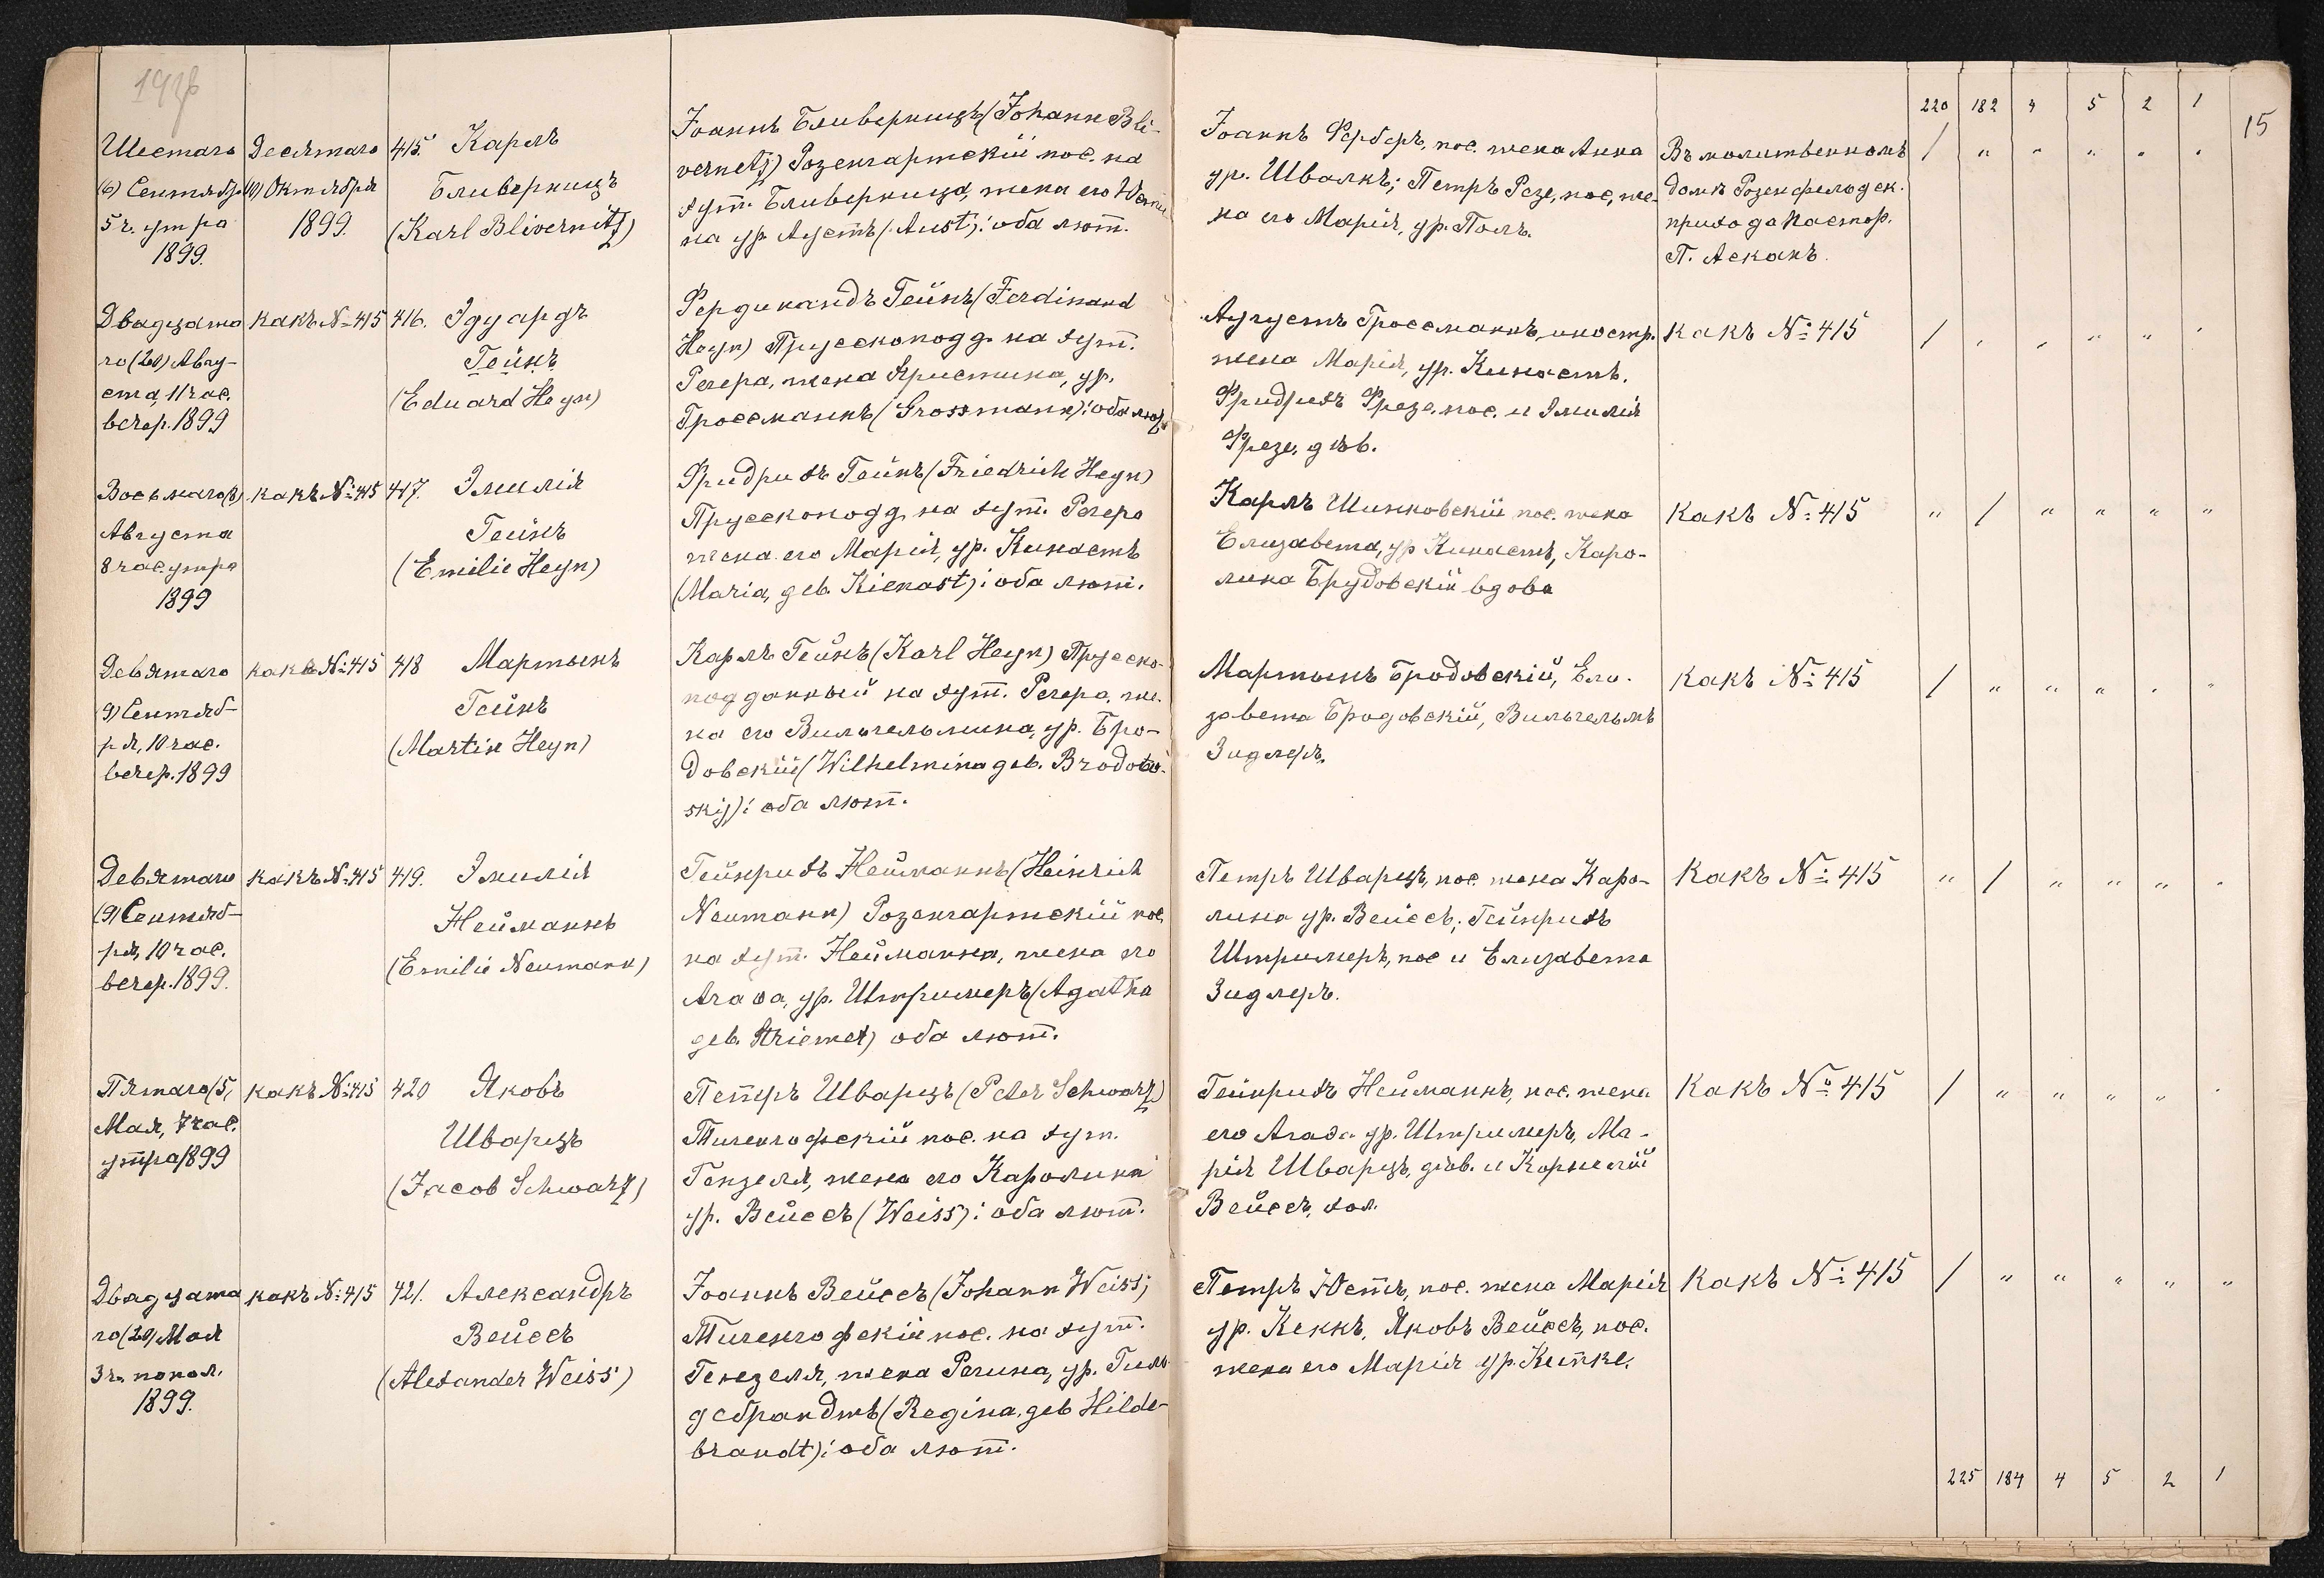 15
220 182 4 5 2 1
Шестаго
(6) Сентябр.
5 ч. утра
1899.
Десятаго
(10) Октября
1899.
415. Карлъ
Бливерницъ
(Karl Blivernitz)
Іоаннъ Бливерницъ (Johann Bli-
vernitz) Розенгартскій пос. на
хут. Бливерница, жена его
на ур. Аустъ (Aust); оба лют.
Іоаннъ Ферберъ, пос. жена Анна
ур. Швалкъ; Петръ Резе, пос., же-
на его Марія, ур. Поль.
Въ молитвенномъ
домѣ Розенфельдск.
прихода Пастор.
П. Асканъ.
/ " " " " "
Двадцата
го (20) Авгу-
ста, 11 час.
вечер. 1899
какъ №415
416. Эдуардъ
Гейнъ
(Eduard Heyn)
Фердинандъ Гейнъ (Ferdinand
Heyn) Прусскоподд. на хут.
Регера, жена Христина, ур.
Гроссманнъ (Grossmann); оба лют.
Августъ Гроссманнъ, иностр.
жена Марія, ур. Кинастъ.
Фридрихъ Фрезе, пос. и Эмилія
Фрезе, дѣв.
какъ №415
/ " " " " "
Восьмаго (8)
Августа
8 час. утра
1899
какъ №415
417. Эмилія
Гейнъ
(Emilie Heyn)
Фридрихъ Гейнъ (Friedrich Heyn)
Прусскоподд. на хут. Регера
жена его Марія, ур. Кинастъ
(Maria, geb. Kienast); оба лют.
Карлъ Шинковскій пос. жена
Елизавета, ур. Кинастъ, Каро-
лина Брудовскій вдова
какъ №415
" / " " " "
Девятаго
(9) Сентяб-
ря, 10 час.
вечер. 1899
какъ №415
418 Мартынъ
Гейнъ
(Martin Heyn)
Карлъ Гейнъ (Karl Heyn) Прусско-
подданный на хут. Регера, же-
на его Вильгельмина, ур. Бро-
довскій (Wilhelmina geb. Brodow-
skij); оба лют.
Мартынъ Бродовскій, Ели-
завета Бродовскій, Вильгельмъ
Зидлеръ.
какъ №415
/ " " " " "
Девятаго
(9) Сентяб-
ря, 10 час.
вечер. 1899.
какъ №415
419. Эмилія
Нейманнъ
(Emilie Neumann)
Гейнрихъ Нейманнъ (Heinrich
Neumann) Розенгартскій пос.
на хут. Нейманна, жена его
Агаѳа, ур. Штримеръ (Agatha
geb. Striemer) оба лют.
Петръ Шварцъ, пос. жена Каро-
лина ур. Вейссъ; Гейнрихъ
Штримеръ, пос и Елизавета
Зидлеръ.
какъ №415
" / " " " "
Пятаго (5)
Мая, 7 час.
утра 1899
какъ №415
420 Яковъ
Шварцъ
(Jacob Schwartz)
Петеръ Шварцъ (Peter Schwartz)
Тигенгофскій пос. на хут.
Гензеля, жена его Каролина
ур. Вейссъ (Weiss); оба лют.
Гейнрихъ Нейманнъ, пос. жена
его Агаѳа ур. Штримеръ, Ма-
рія Шварцъ, дѣв. и Корнелій
Вейссъ, хол.
какъ №415
/ " " " " "
Двадцата
го (20) Мая
3 ч. попол.
1899.
какъ №415
421. Александръ
Вейссъ
(Alexander Weiss)
Іоаннъ Вейссъ (Johann Weiss)
Тигенгофскій пос. на хут.
Гензеля, жена Регина, ур. Гиль-
дебрандтъ (Regina, geb Hilde-
brandt); оба лют.
Петръ Юстъ, пос. жена Марія
ур. Кеккъ, Яковъ Вейссъ, пос.
жена его Марія ур. Кипке.
какъ №415
/ " " " " "
225 184 4 5 2 1